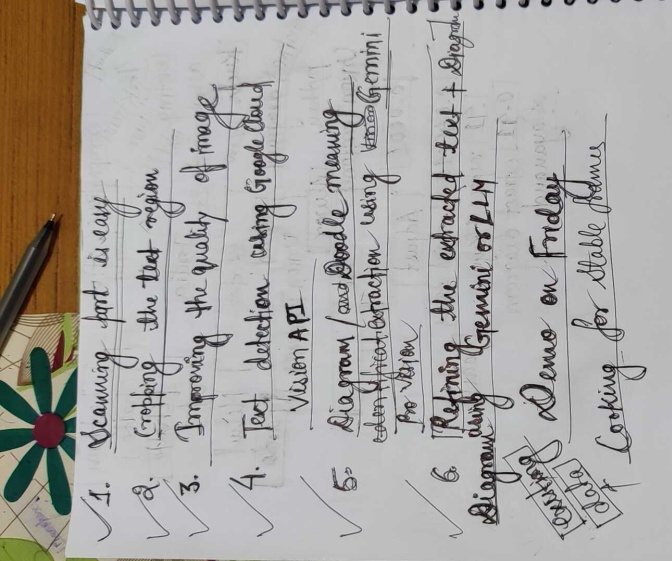 1. Scanning part is easy
2. Cropping the text region
3. Improving the quality of image
4. Text detection using Google Cloud
Vision API
5. Diagram / and Doodle meaning
extraction using Gemini
Pro Vision
6. Refining the extracted text + Diagram
Diagram using Gemini or LLM
Demo on Friday
existing
data
Looking for stable frames